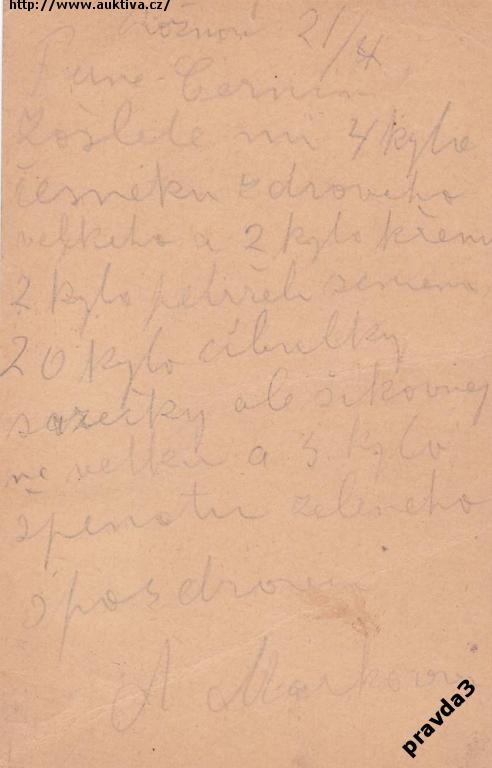 http://www.auktiva.cz/
Rožnov 21/4
Pane Černín
Zošlete mi 4 kyla
česneku zdroveho
velkeho a 2 kylo křenu
2 kylo petržele semena
20 kylo cibulky
sazečky ale šikovnej
ne velku a 3 kylo
špenatu zeleneho
s pozdrovem
A Markova
pravda3